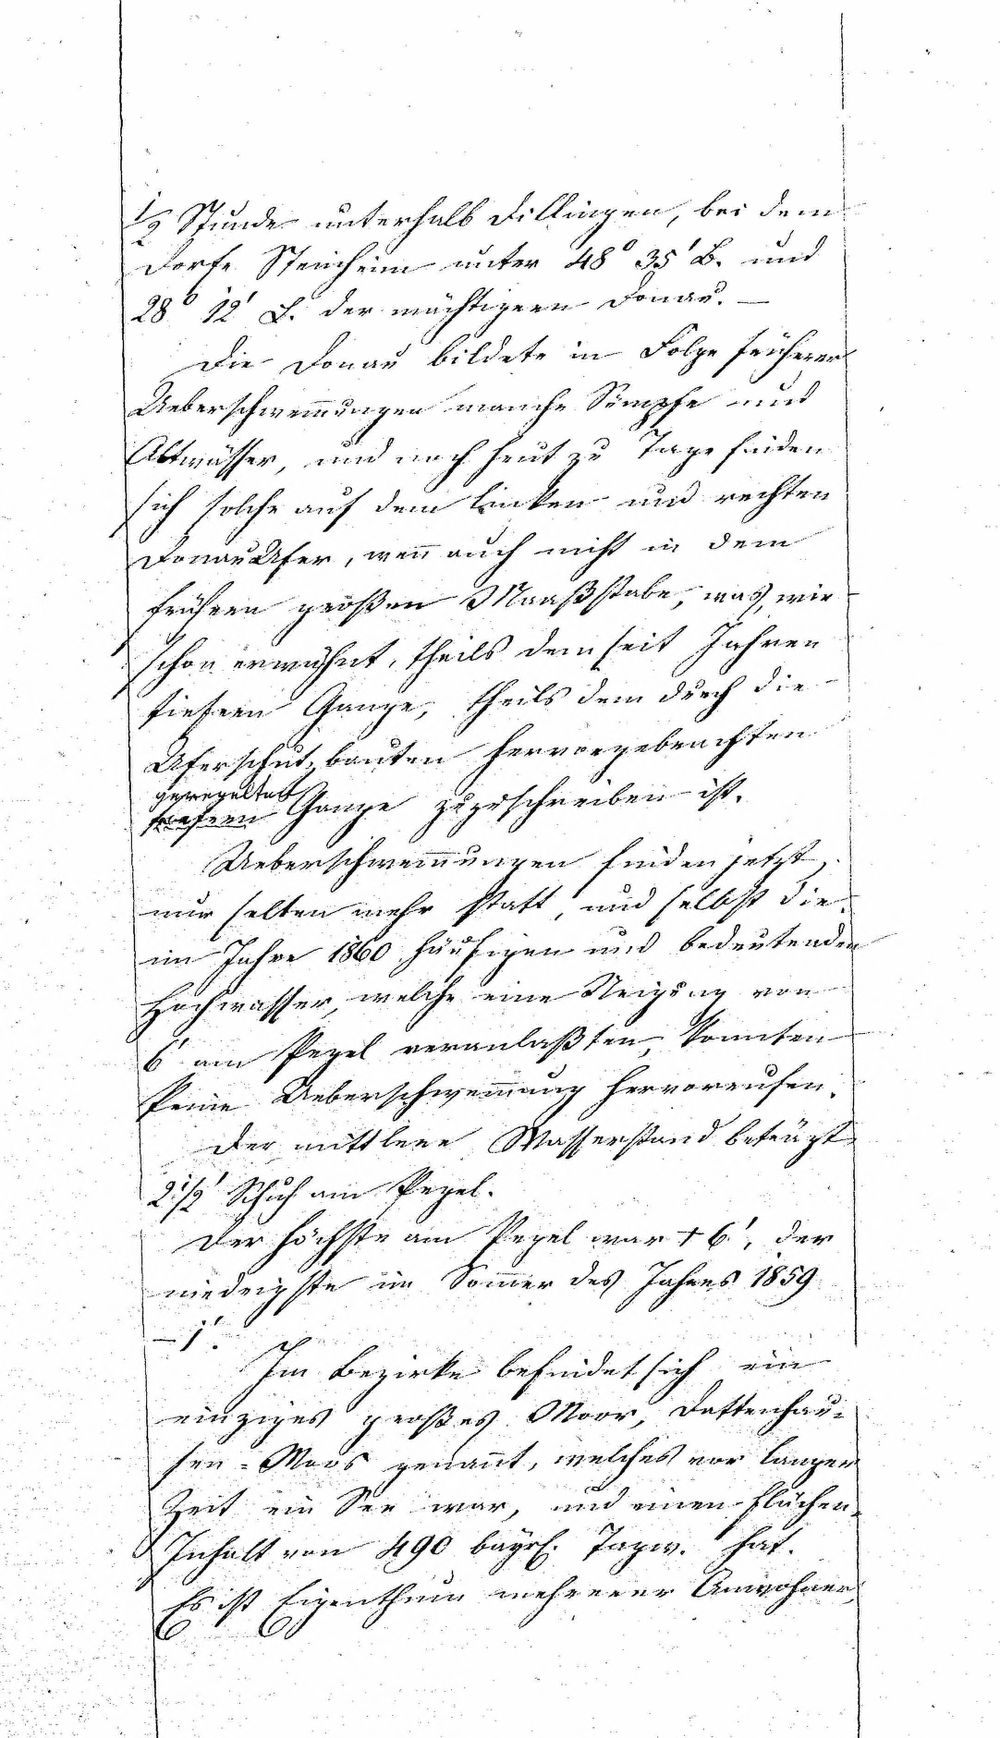 1/2 Stunde unterhalb Dillingen, bei dem
Dorfe Steinheim unter 48° 35' B. und
28° 12' L. der mächtigern Donau. —
Die Donau bildete in Folge früherer
Ueberschwem̄ungen manche Sümpfe und
Altwässer, und noch heut zu Tage finden
sich solche auf dem linken und rechten
DonauUfer, wen̄ auch nicht in dem
frühern großen Maaßstabe, was, wie
schon erwähnt, theils dem seit Jahren
tiefern Gange, theils dem durch die
Uferschutzbauten hervorgebrachten
geregelten
tiefern Gange zuzuschreiben ist.
Ueberschwem̄ungen finden jetzt
nur selten mehr statt, und selbst die
im Jahre 1860 häufigen und bedeutenden
Hochwasser, welche eine Steigung von
6' am Pegel veranlaßten, konnten
keine Ueberschwem̄ung hervorrufen.
Der mittlere Wasserstand beträgt
2 1/2' Schuh am Pegel.
Der höchste am Pegel war + 6', der
niedrigste im Som̄er des Jahres 1859
— 1'.
Im Bezirke befindet sich ein
einziges großes Moor, Dattenhau-
sen-Moos genan̄t, welches vor langer
Zeit ein See war, und einen Flächen-
Inhalt von 490 bayr. Tagw. hat.
Es ist Eigenthum mehrerer Anwohner,